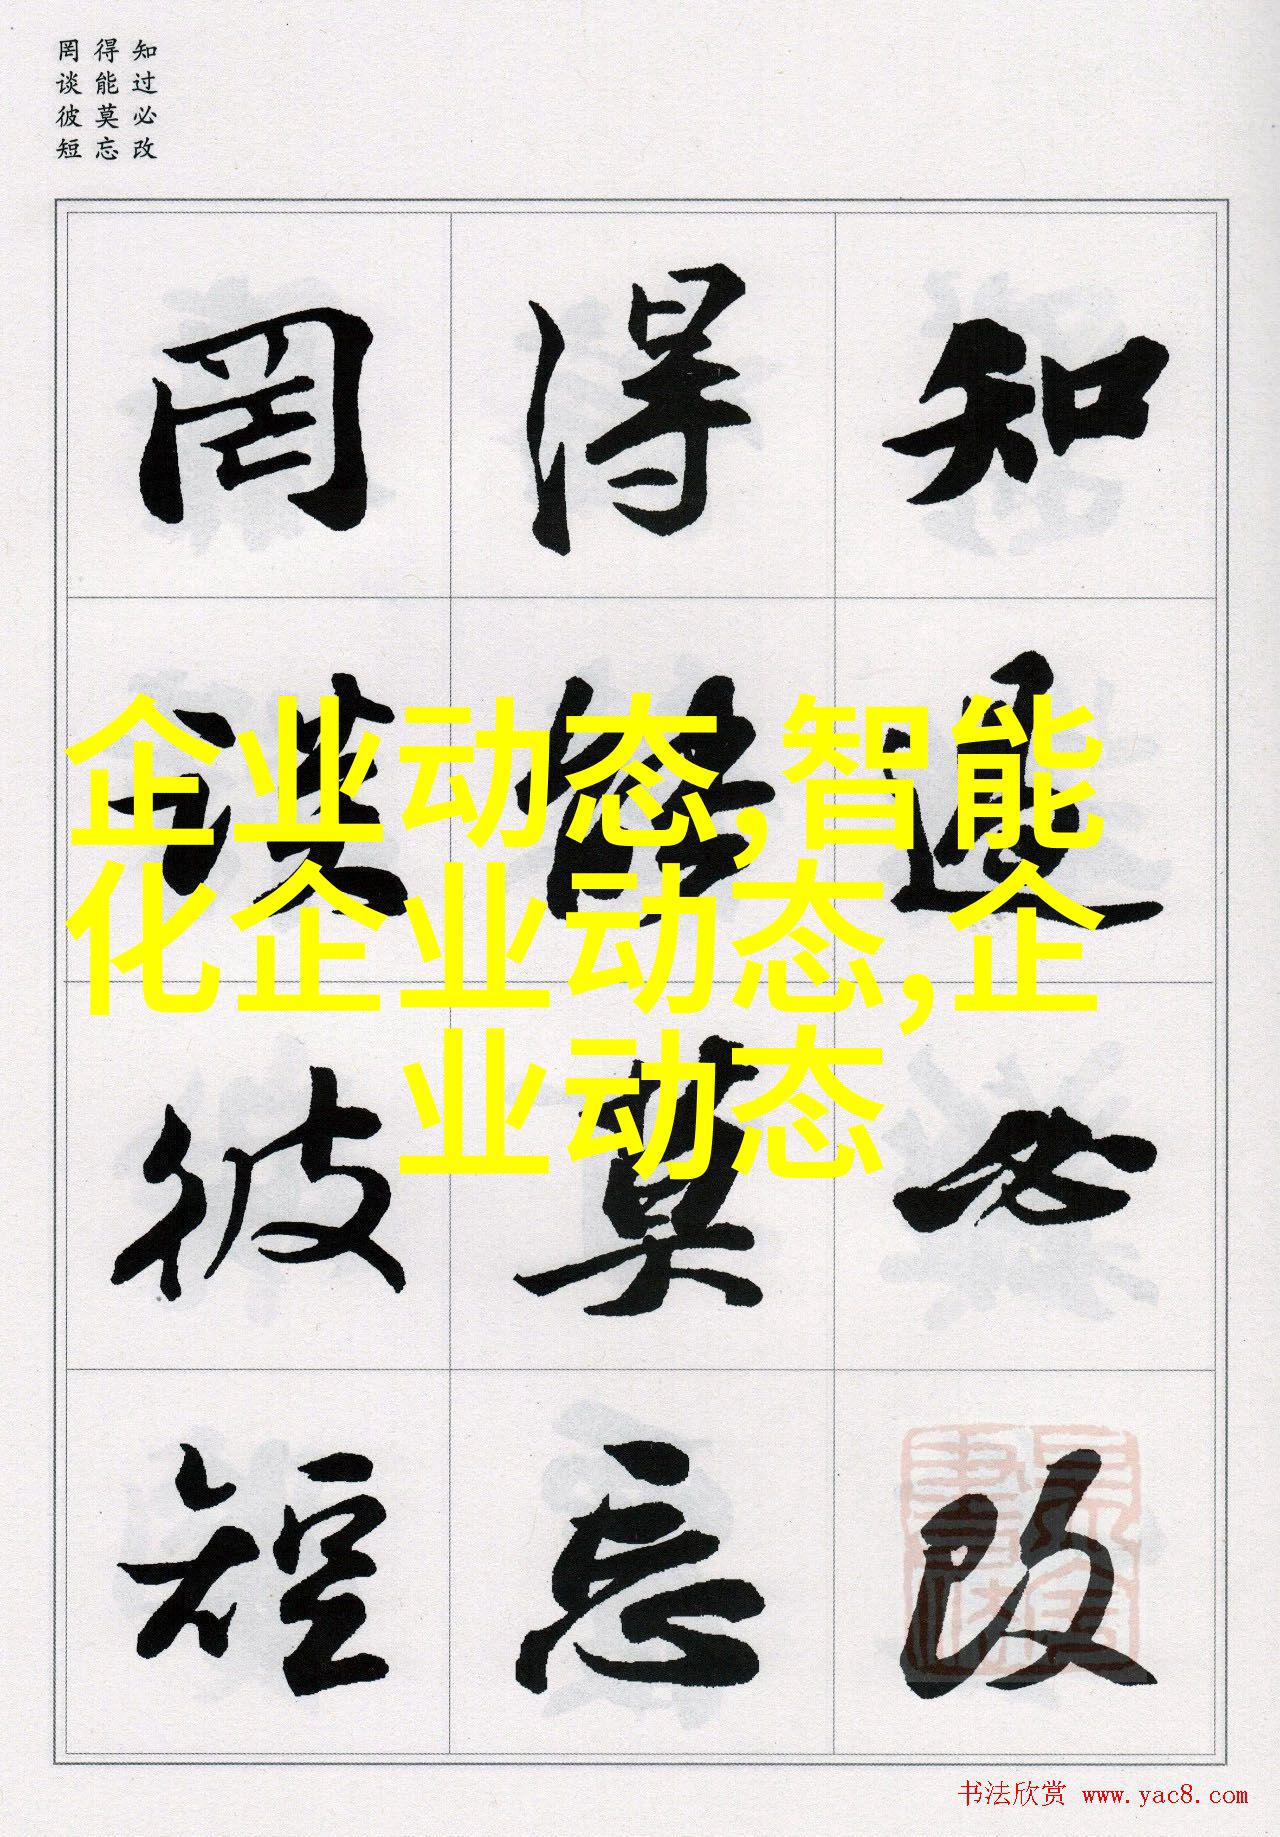 知过必改
得能莫忘
罔谈彼短
知過必改
得能莫忘
罔談彼短
企业动态,智能
化企业动态,企
业动态
书法欣赏 www.yac8.com